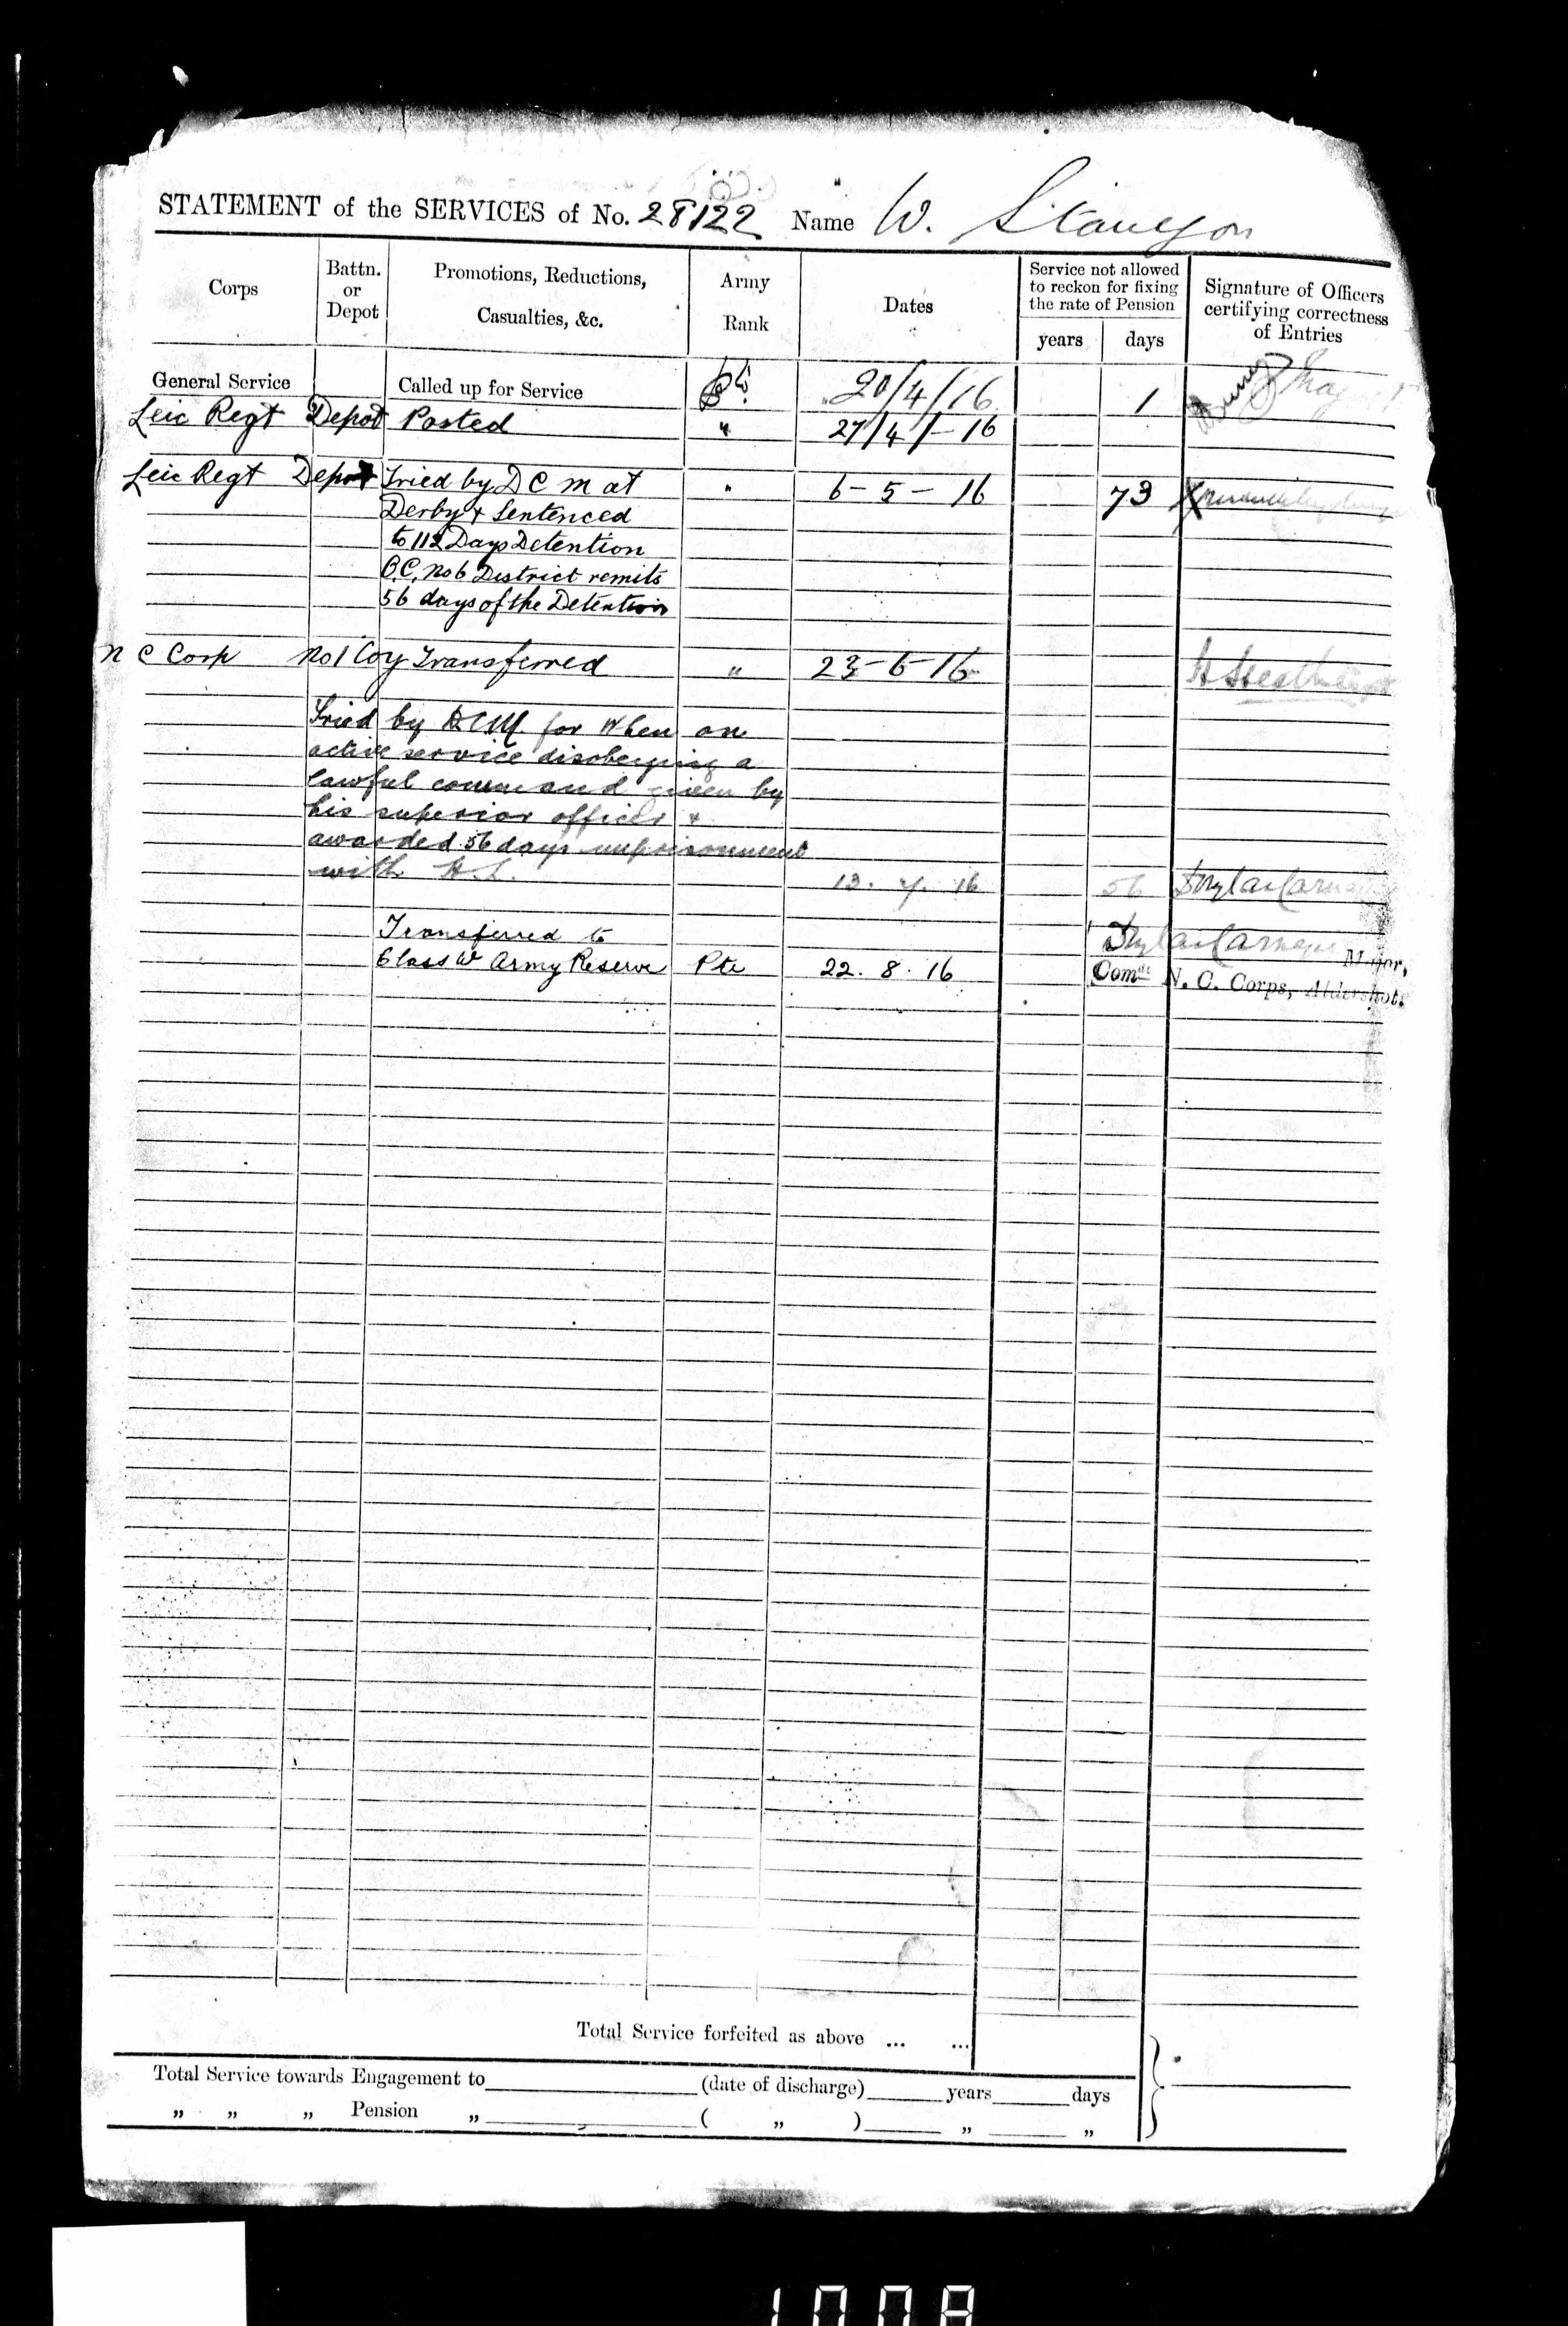 STATEMENT of the SERVICES of No. 28122 Name W. Stanyon
Corps
Battn.
or
Depot
Promotions, Reductions,
Casualties, &c.
Army
Rank
Dates
Service not allowed
to reckon for fixing
the rate of Pension
years days
Signature of Officers
certifying correctness
of Entries
General Service Called up for Service Pte 20/4/16 1
Leic Regt Depot Posted " 27/4/-16
Leic Regt Depot Tried by D C M at " 6-5-16 73
Derby & Sentenced
to 112 Days Detention
G.C. No 6 District remits
56 days of the Detention
N C Corp No 1 Coy Transferred " 23-6-16
Tried by DCM. for When on
active service disobeying a
lawful command given by
his superior officer &
awarded 56 days imprisonment
with H.L. 13. 7. 16 56
Transferred to Major,
Class W Army Reserve Pte 22. 8. 16 Comdt N. C. Corps, Aldershot.
Total Service forfeited as above ... ...
Total Service towards Engagement to (date of discharge) years days
„ „ „ Pension „ ( „ ) „ „
1008